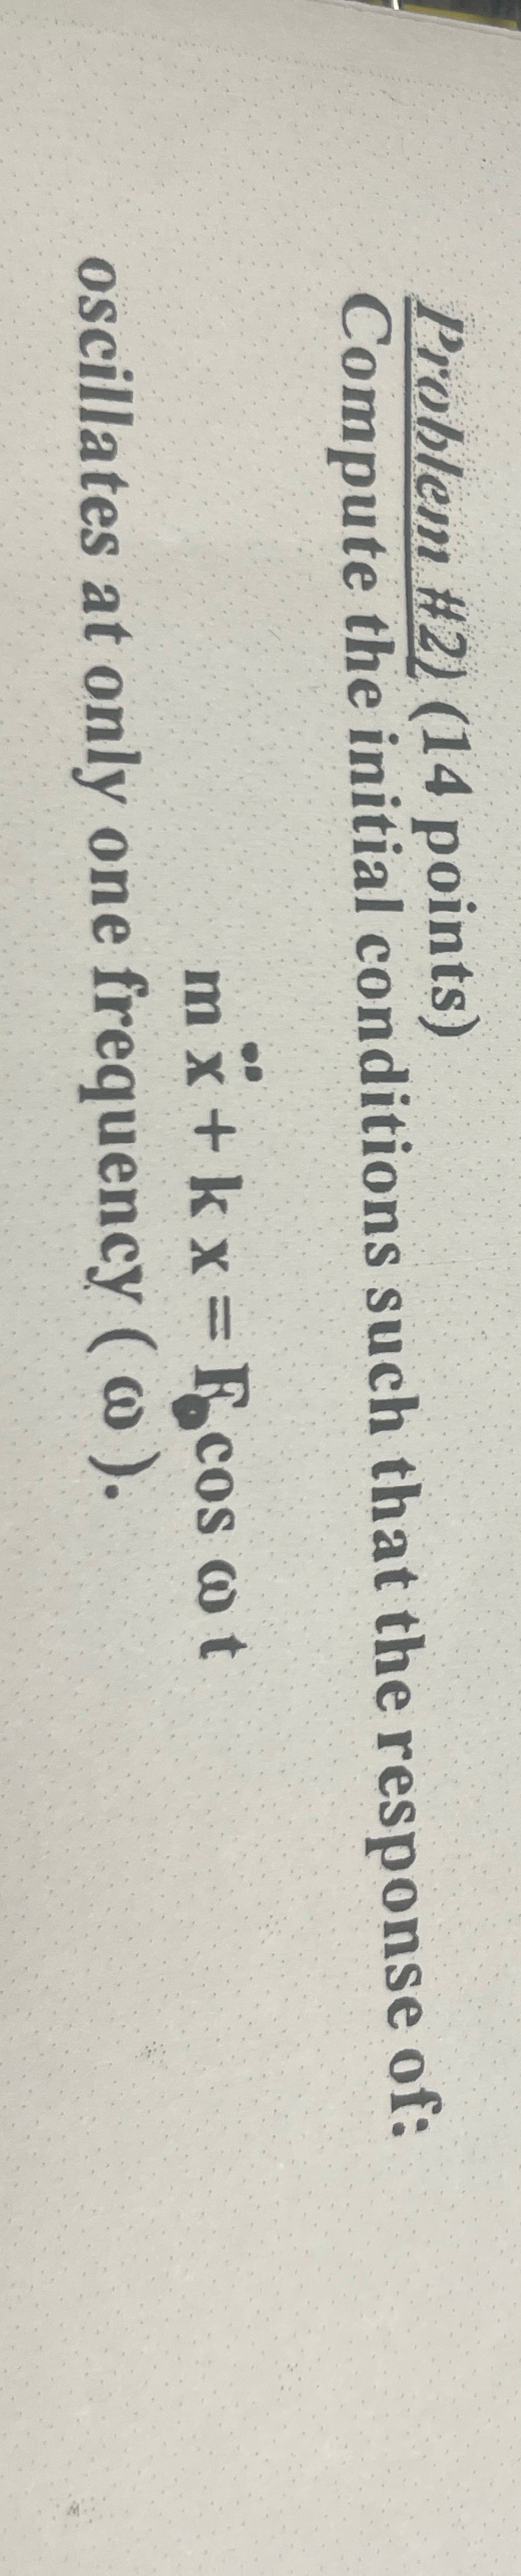 Problem #2) (14 points)
Compute the initial conditions such that the response of:
m ẍ + k x = F₀ cos ω t
oscillates at only one frequency ( ω ).